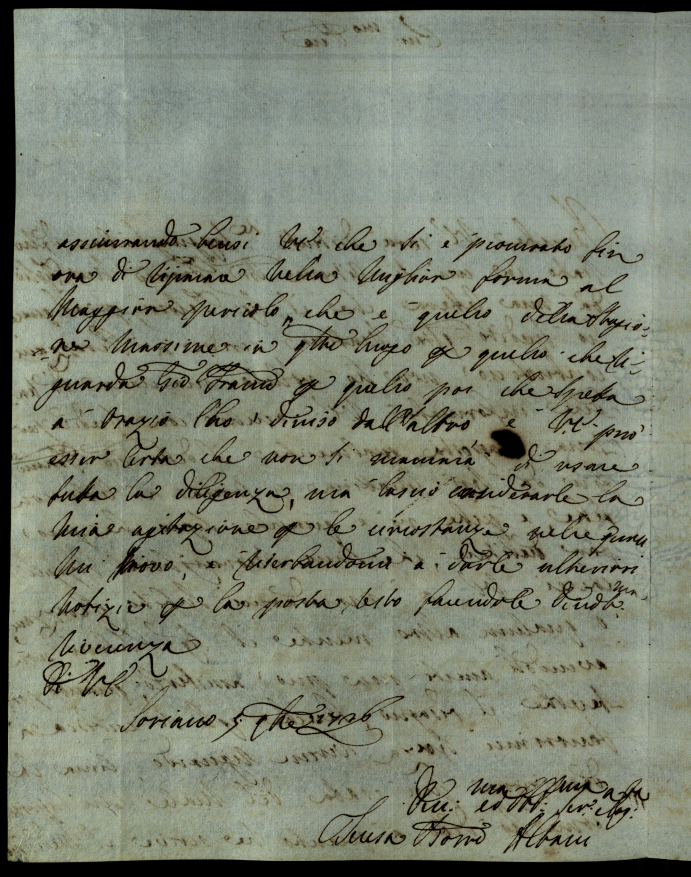 assicurando bensì V.E. che si è procurato fin
ora di riparare nella miglior forma al
maggior pericolo, che è quello della stagio-
ne massime in q.to luogo p quello che ri-
guarda p quello poi che spetta
a Orazio l'ho diviso dall'altro e V.E. può
esser certa che non si mancarà di usare
tutta la diligenza, ma lascio considerarle la
mia agitazione p le circostanze nelle quali
mi trovo, e riserbandomi a darle ulteriori
notizie p la posta, resto facendole div.ma
riverenza
Di V.E.
Soriano 5 1726
Dev.ma
ed Obl.
Teresa Borro. Albani